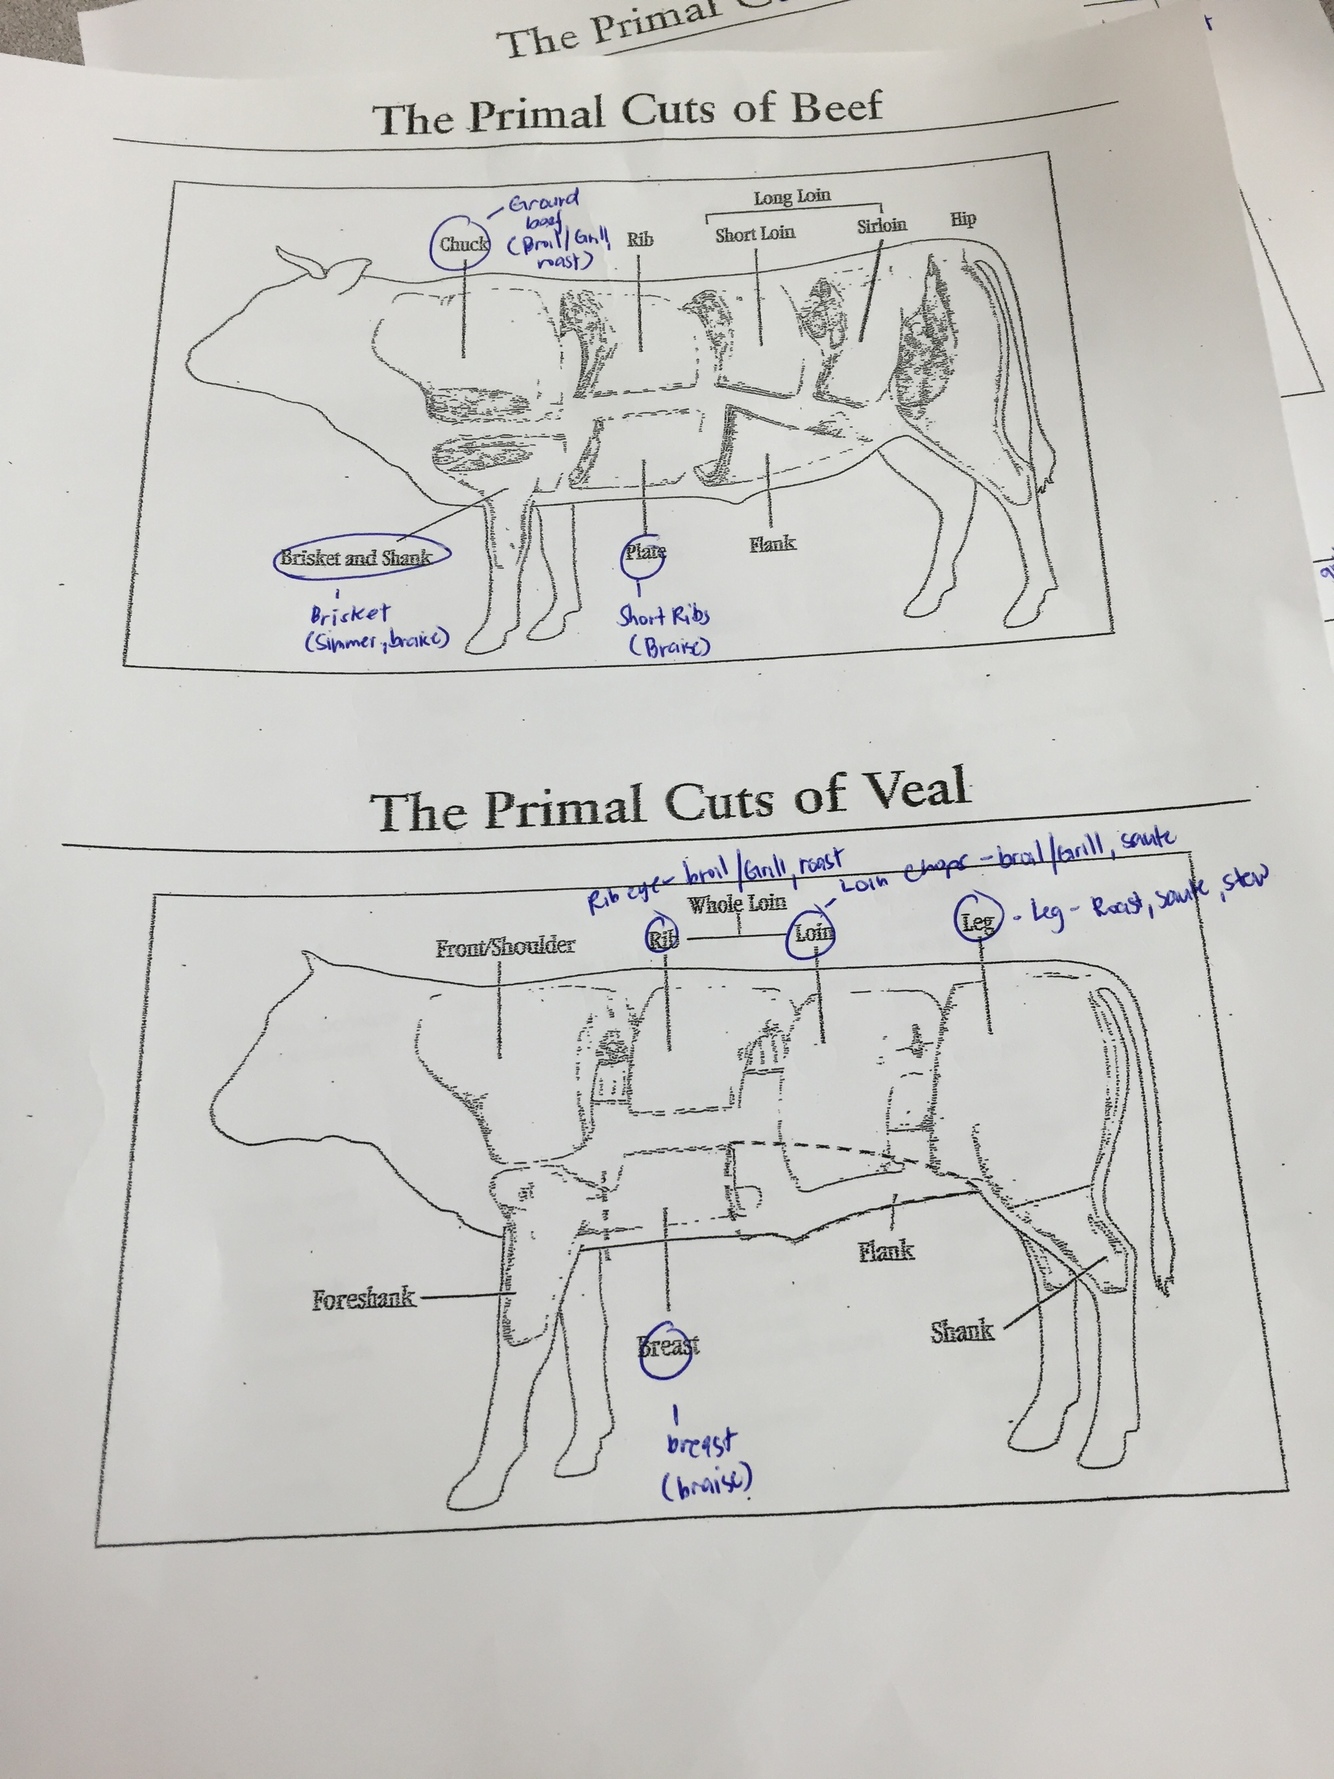 The Primal C
The Primal Cuts of Beef
Long Loin
Ground
beef
Chuck
(Broil/Grill,
roast)
Rib
Short Loin
Sirloin
Hip
Brisket and Shank
Plate
Flank
Brisket
(Simmer, braise)
Short Ribs
(Braise)
The Primal Cuts of Veal
Rib eye - broil/Grill, roast
Loin chops - broil/Grill, saute
Whole Loin
Front/Shoulder
Rib
Loin
Leg
- Leg - Roast, saute, stew
Flank
Foreshank
Shank
Breast
breast
(braise)